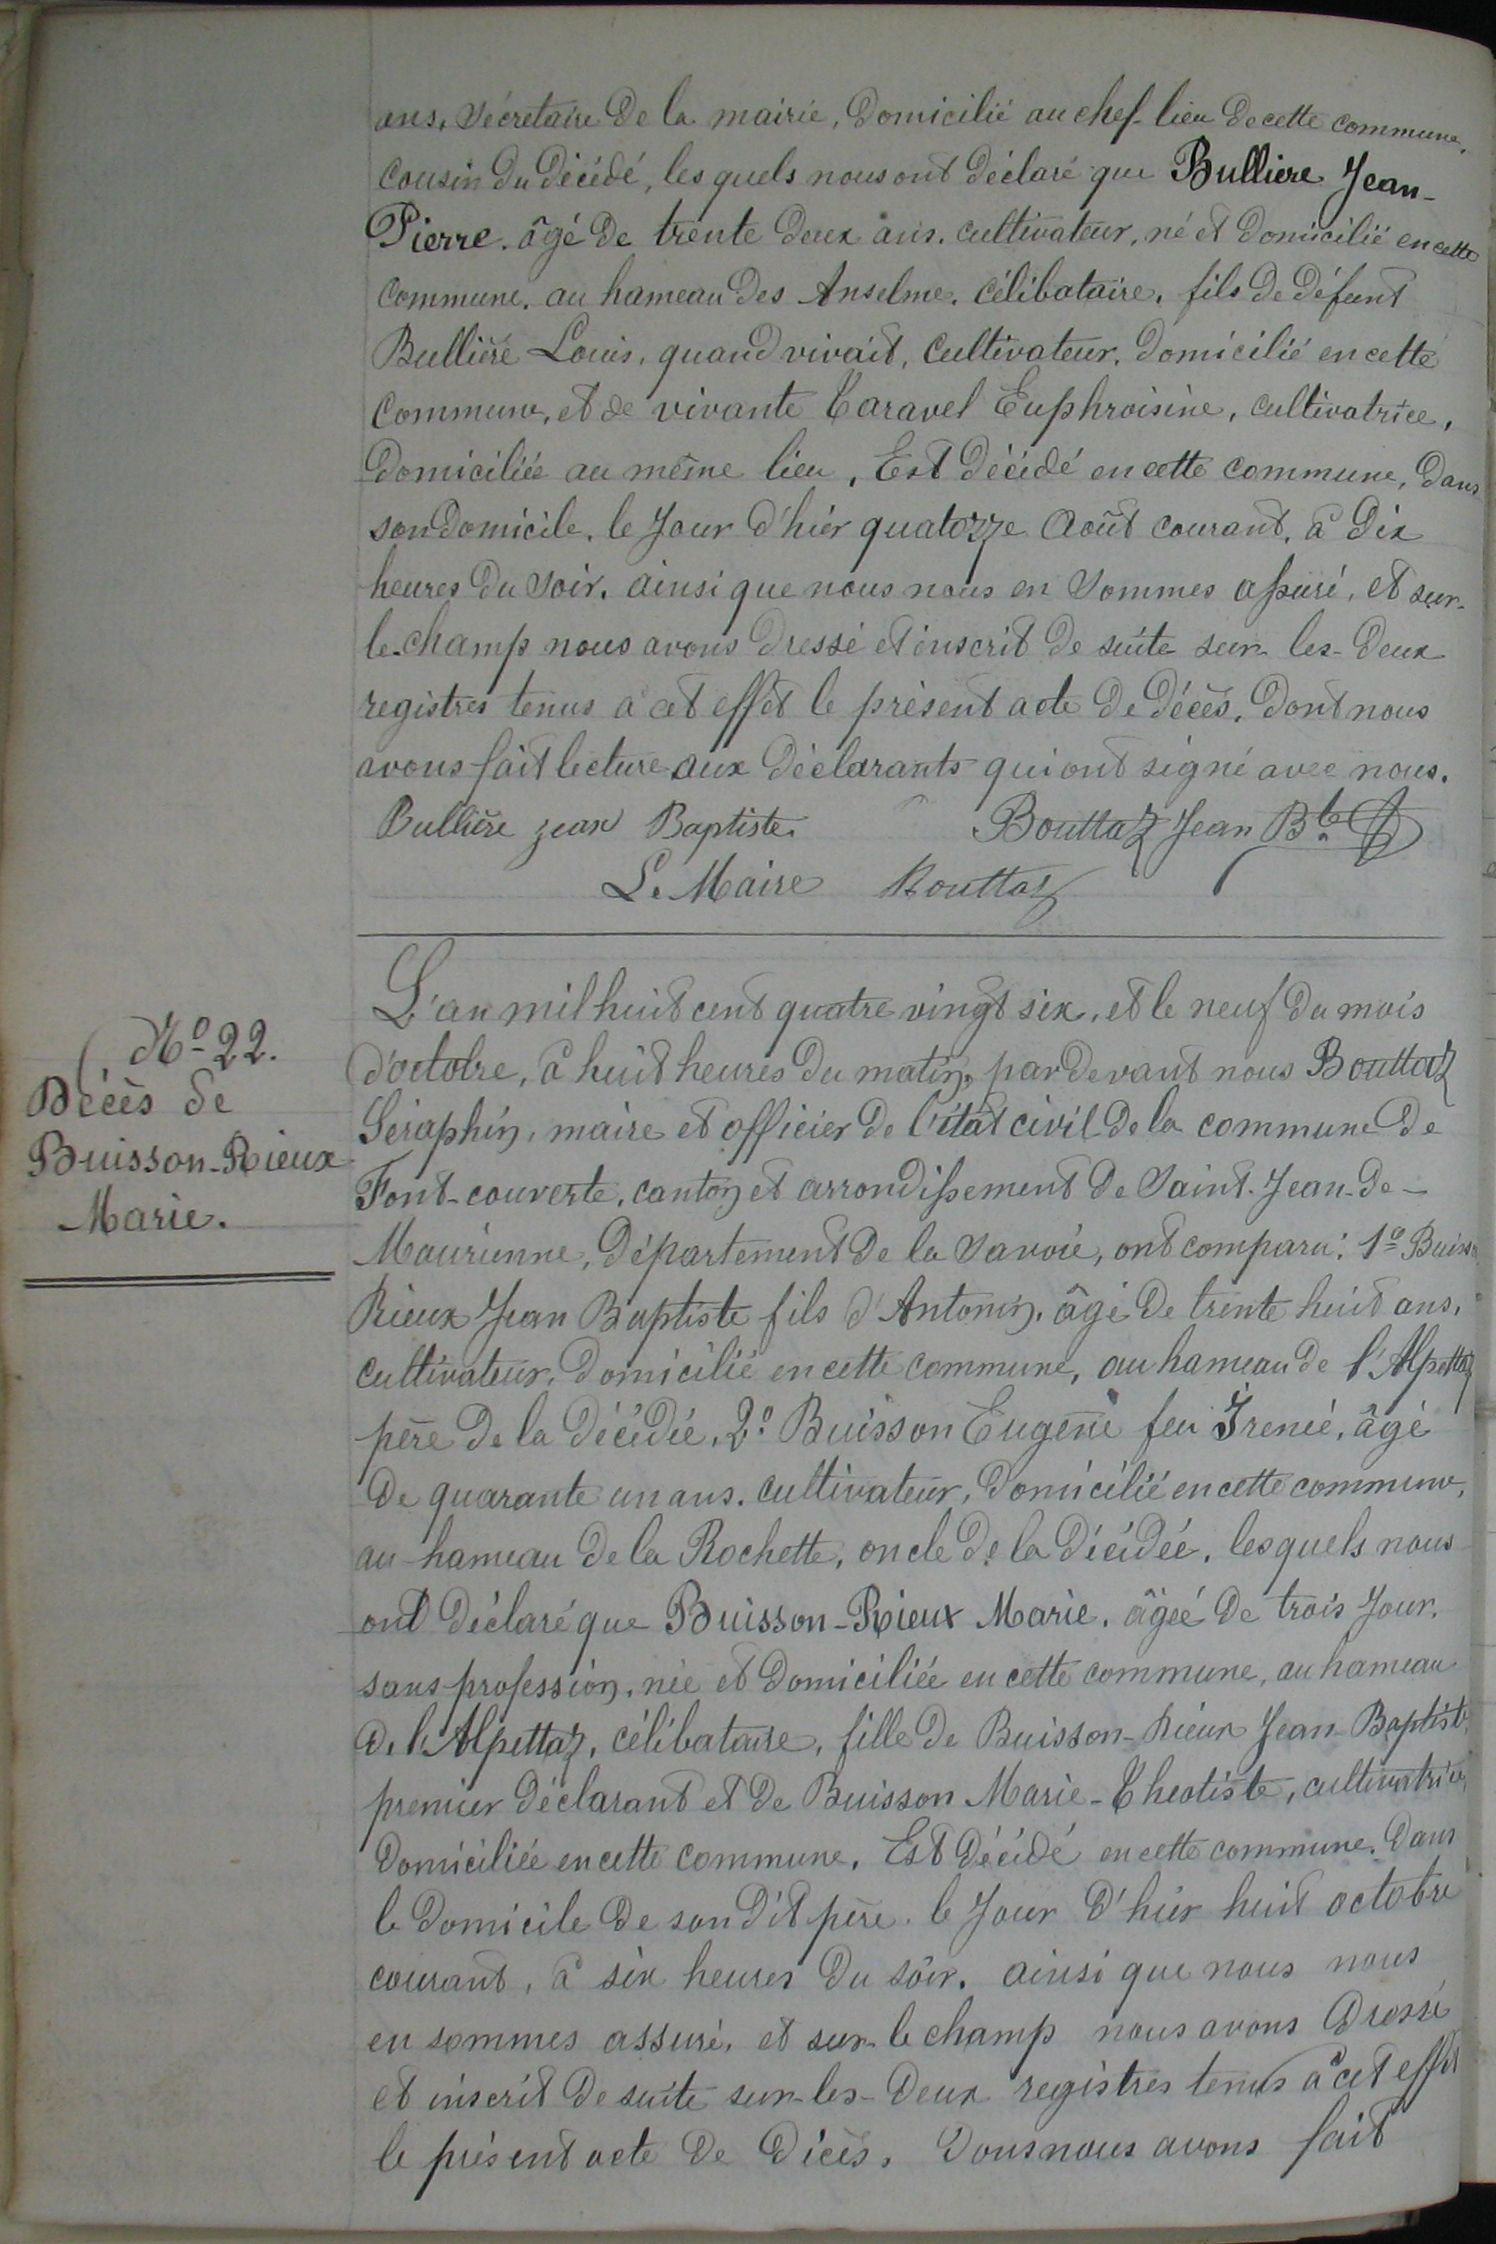 ans, Sécretaire de la mairie, domicilié au chef-lieu de cette commune,
cousin du décédé, les quels nous ont déclaré que Bulliere Jean-
Pierre, âgé de trente deux ans, cultivateur, né et domicilié en cette
commune, au hameau des Anselme, célibataire, fils de défunt
Bullière Louis, quand vivait, cultivateur, domicilié en cette
commune, et de vivante Caravel Euphroisine, cultivatrice,
domiciliée au même lieu, Est décédé en cette commune, dans
son domicile, le jour d'hier quatozze Août courant, à dix
heures du soir, ainsi que nous nous en sommes assuré, et sur-
le-champ nous avons dressé et inscrit de suite sur les deux
registres tenus à cet effet le présent acte de décès, dont nous
avons fait lecture aux déclarants qui ont signé avec nous.
Bullière jean Baptiste Bouttaz Jean Bte
Le Maire Bouttaz
L'an mil huit cent quatre vingt six, et le neuf du mois
d'octobre, à huit heures du matin, par devant nous Bouttaz
Séraphin, maire et officier de l'état civil de la commune de
Font-couverte, canton et arrondissement de Saint-Jean-de-
Maurienne, département de la Savoie, ont comparu: 1º Buisson
Rieux Jean Baptiste fils d'Antonin, âgé de trente huit ans,
cultivateur, domicilié en cette commune, au hameau de l'Alpettaz
père de la décédée, 2º Buisson Eugène feu Irené, âgé
de quarante un ans, cultivateur, domicilié en cette commune,
au hameau de la Rochette, oncle de la décédée, lesquels nous
ont déclaré que Buisson-Rieux Marie, âgée de trois jour,
sans profession, née et domiciliée en cette commune, au hameau
de l'Alpettaz, célibataire, fille de Buisson-Rieux Jean-Baptiste
premier déclarant et de Buisson Marie-Theotiste, cultivatrice
domiciliée en cette commune, Est décédé en cette commune, dans
le domicile de son dit père, le jour d'hier huit octobre
courant, à six heures du soir, ainsi que nous nous
en sommes assuré, et sur-le champ nous avons dressé
et inscrit de suite sur-les-deux registres tenus à cet effet
le présent acte de décès, dont nous avons fait
Nº 22.
Décès de
Buisson-Rieux
Marie.